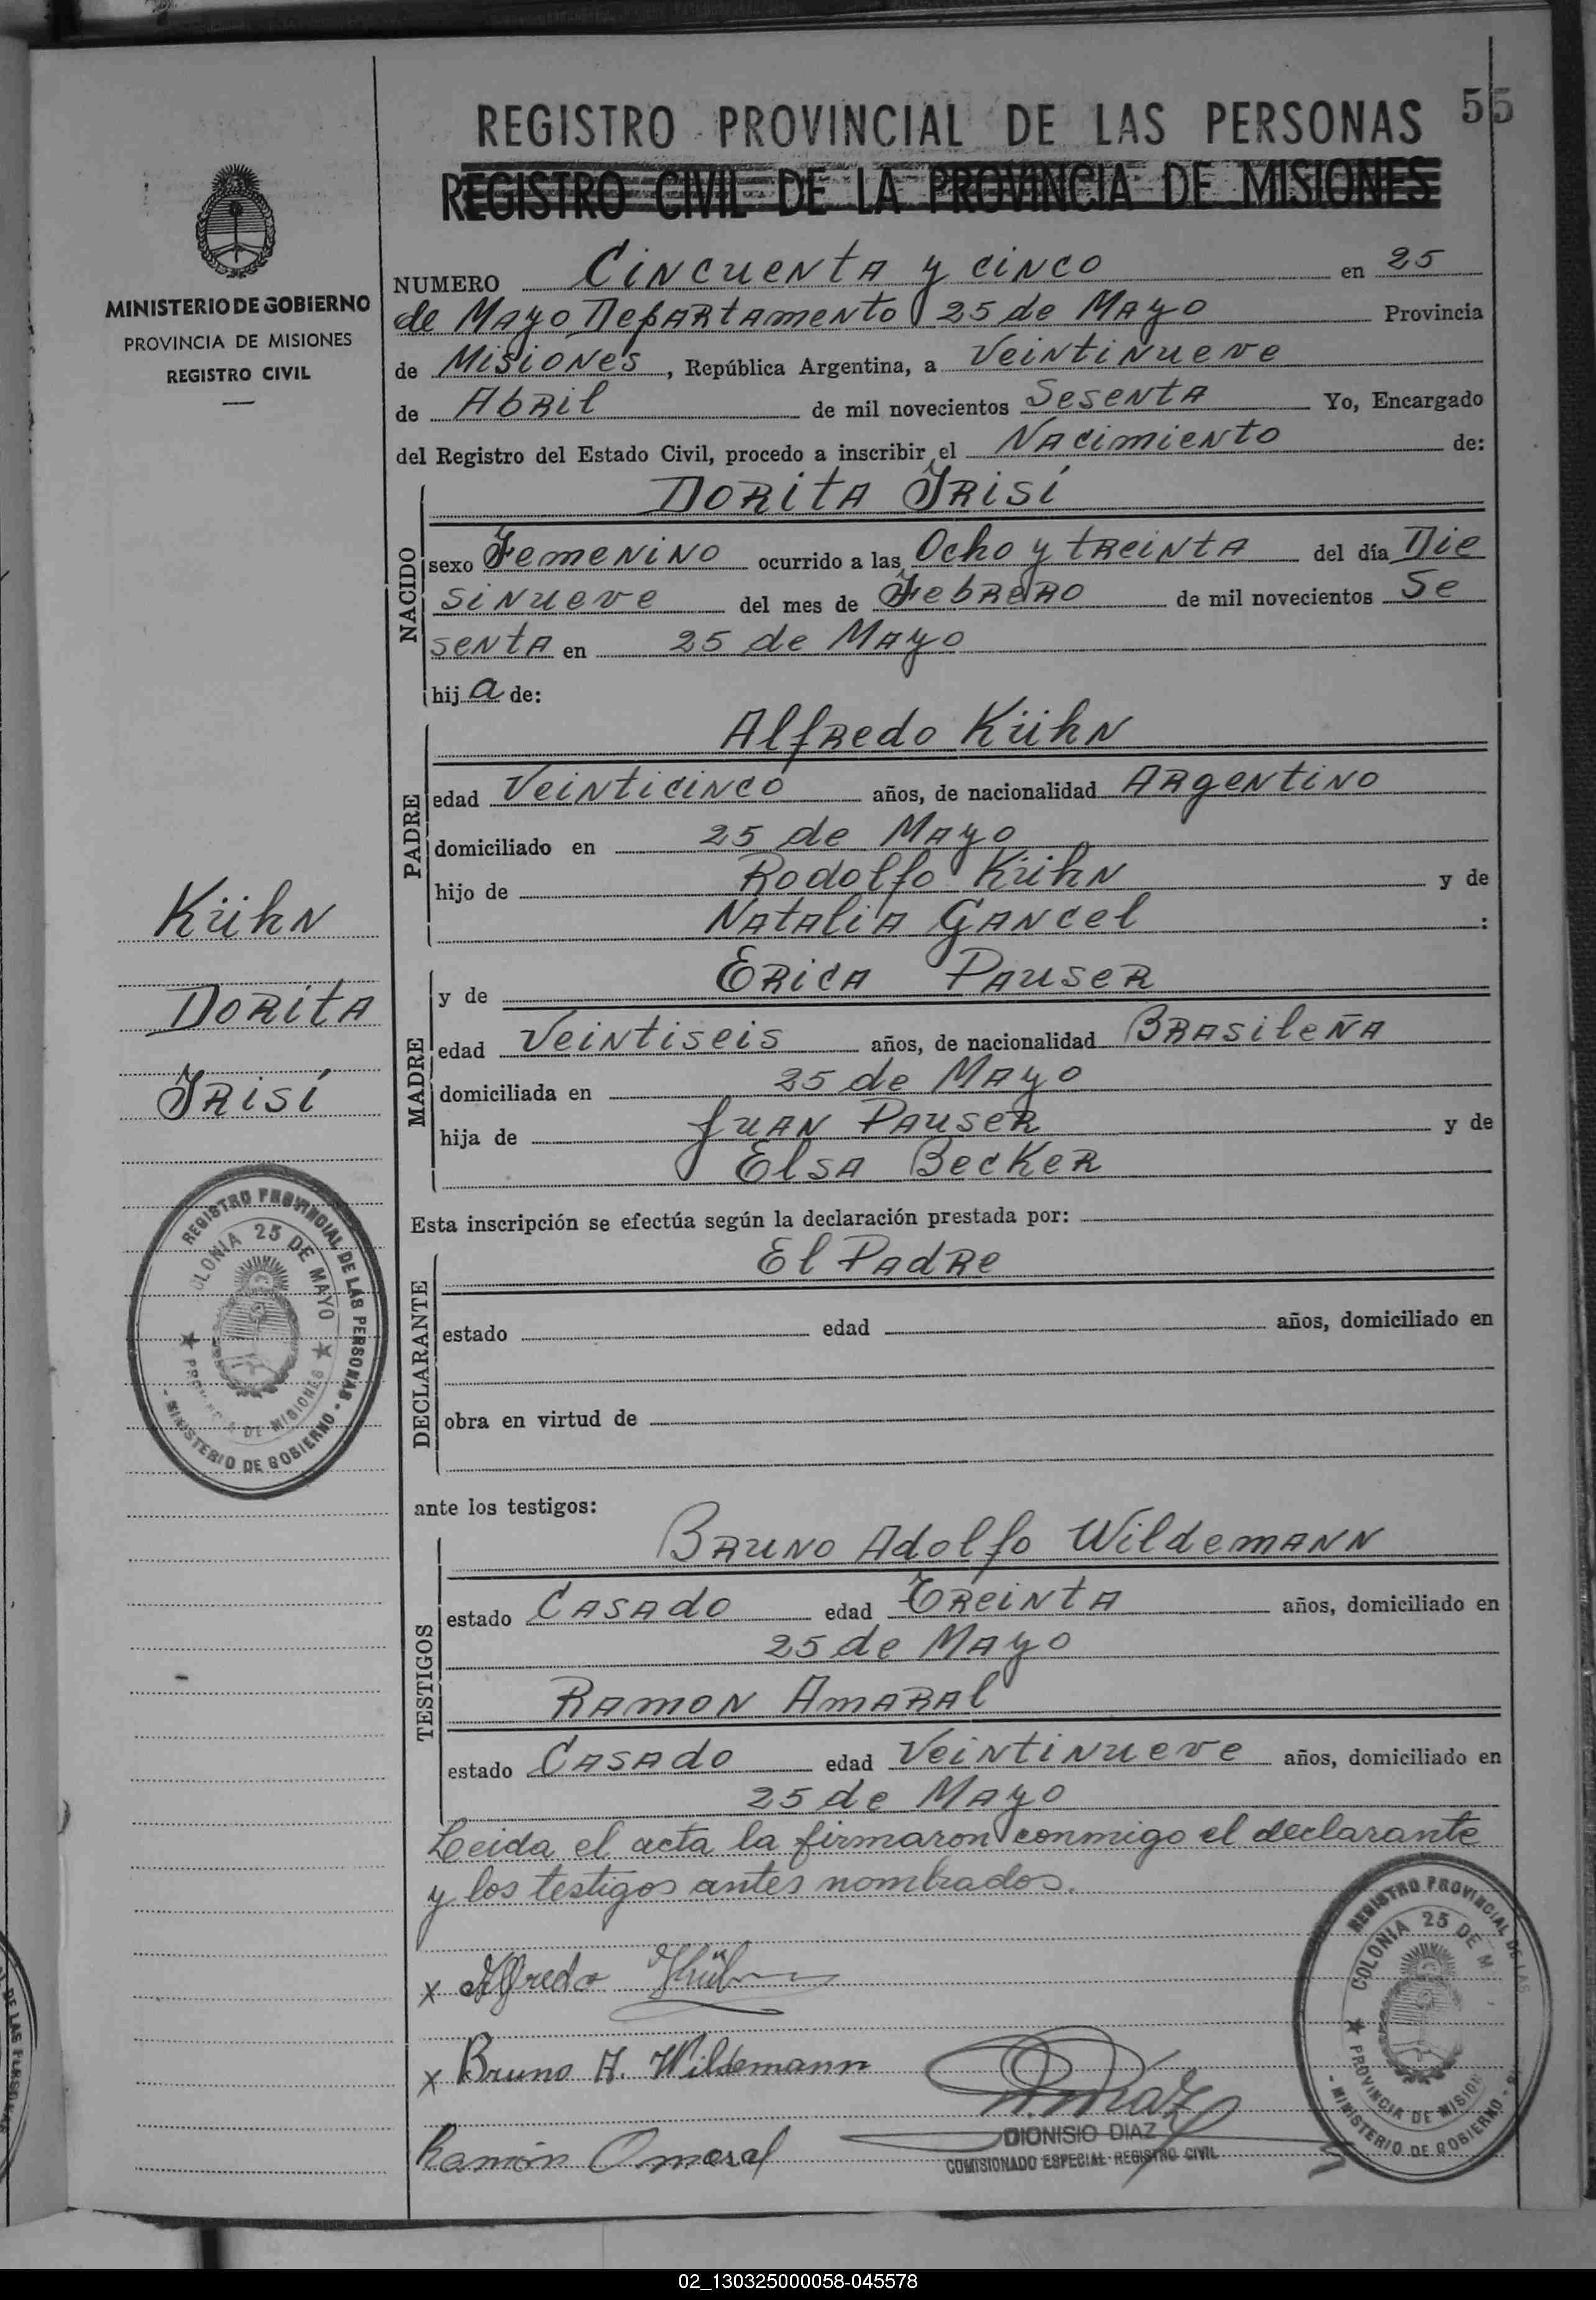 55
REGISTRO PROVINCIAL DE LAS PERSONAS
REGISTRO CIVIL DE LA PROVINCIA DE MISIONES
MINISTERIO DE GOBIERNO
PROVINCIA DE MISIONES
REGISTRO CIVIL
NUMERO Cincuenta y cinco en 25
de Mayo Departamento 25 de Mayo Provincia
de Misiones, República Argentina, a Veintinueve
de Abril de mil novecientos Sesenta Yo, Encargado
del Registro del Estado Civil, procedo a inscribir el Nacimiento de:
NACIDO
Dorita Irisí
sexo Femenino ocurrido a las Ocho y treinta del día Die
sinueve del mes de Febrero de mil novecientos Se
senta en 25 de Mayo
hij a de:
PADRE
Alfredo Kühn
edad Veinticinco años, de nacionalidad Argentino
domiciliado en 25 de Mayo
hijo de Rodolfo Kühn y de
Natalia Gancel :
MADRE
y de Erica Pauser
edad Veintiseis años, de nacionalidad Brasileña
domiciliada en 25 de Mayo
hija de Juan Pauser y de
Elsa Becker
Kühn
Dorita
Irisí
REGISTRO PROVINCIAL DE LAS PERSONAS - MINISTERIO DE GOBIERNO -
COLONIA 25 DE MAYO ★ PROVINCIA DE MISIONES ★
Esta inscripción se efectúa según la declaración prestada por:
DECLARANTE
El Padre
estado edad años, domiciliado en
obra en virtud de
ante los testigos:
TESTIGOS
Bruno Adolfo Wildemann
estado Casado edad Treinta años, domiciliado en
25 de Mayo
Ramon Amaral
estado Casado edad Veintinueve años, domiciliado en
25 de Mayo
Leida el acta la firmaron conmigo el declarante
y los testigos antes nombrados.
x Alfredo Kühn
x Bruno A. Wildemann
Ramón Omaral
D. Diaz
DIONISIO DIAZ
COMISIONADO ESPECIAL REGISTRO CIVIL
REGISTRO PROVINCIAL DE LAS
COLONIA 25 DE M
★ PROVINCIA DE MISION
- MINISTERIO DE GOBIERNO -
DE LAS PERSONAS
02_130325000058-045578